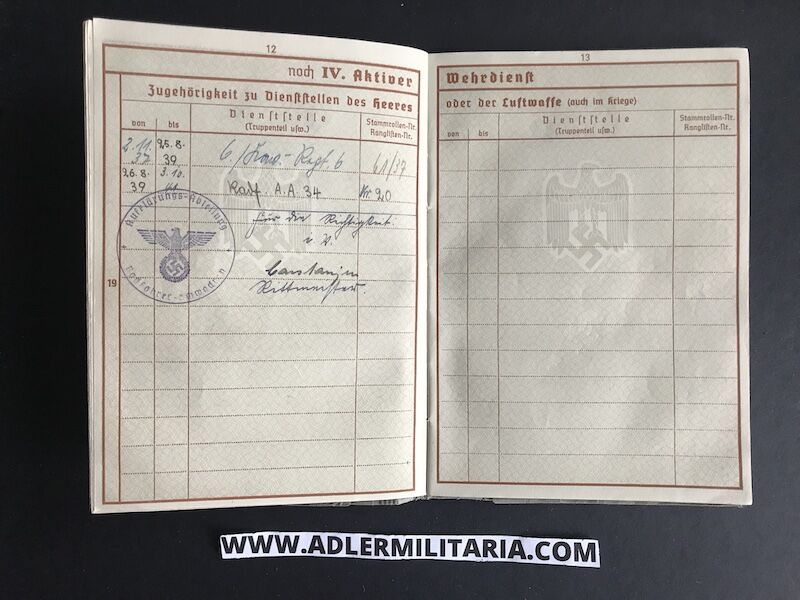 12
noch IV. Aktiver
Zugehörigkeit zu Dienststellen des Heeres
von
bis
Dienststelle
(Truppenteil usw.)
Stammrollen-Nr.
Ranglisten-Nr.
2.11. 25.8.
37 39
6/Kav.-Regt. 6
61/37
26.8. 3.10.
39 41
Radf. A.A. 34
Nr 20
Für die Richtigkeit:
Rittmeister.
Aufklärungs-Abteilung
Radfahrer-Schwadron
19
13
Wehrdienst
oder der Luftwaffe (auch im Kriege)
von
bis
Dienststelle
(Truppenteil usw.)
Stammrollen-Nr.
Ranglisten-Nr.
WWW.ADLERMILITARIA.COM